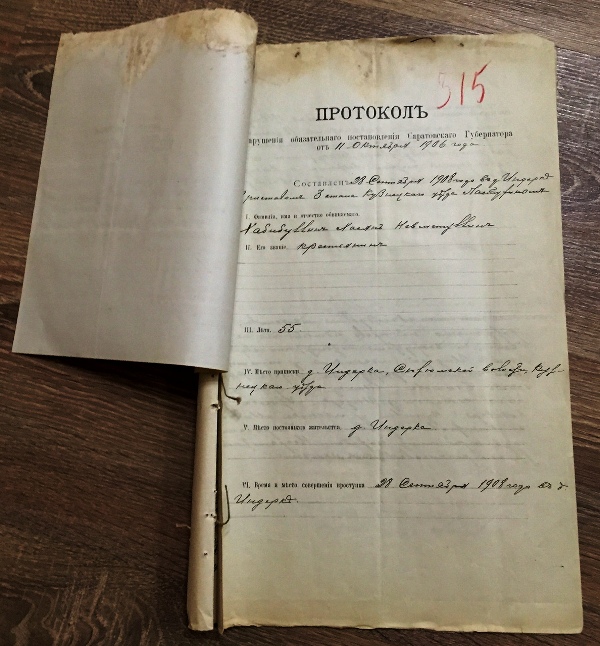 315
ПРОТОКОЛЪ
нарушенія обязательнаго постановленія Саратовскаго Губернатора
отъ 11 Октября 1906 года
Составленъ 28 Сентября 1908 года въ д. Индерка
Приставомъ 3 стана Кузнецкаго уѣзда
I. Фамилія, имя и отчество обвиняемаго.
Хабибуллинъ
II. Его званіе. крестьянинъ
III. Лѣта. 55
IV. Мѣсто приписки д. Индерка, волости, Куз-
нецкаго уѣзда
V. Мѣсто постояннаго жительства. д. Индерка
VI. Время и мѣсто совершенія проступка 28 Сентября 1908 года въ д.
Индеркѣ.